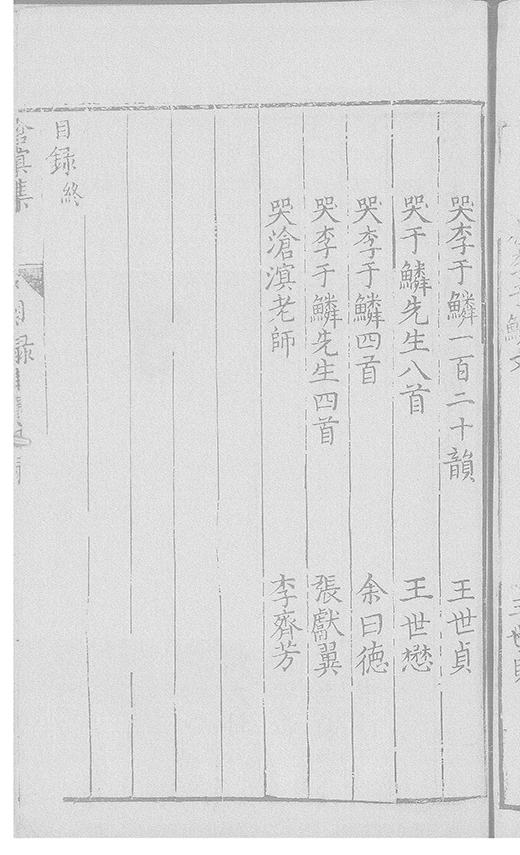 哭李于鱗一百二十韻 王世貞
哭于鱗先生八首 王世懋
哭李于鱗四首 余曰德
哭李于鱗先生四首 張獻翼
哭滄溟老師 李齊芳
目録終
滄溟集
目録